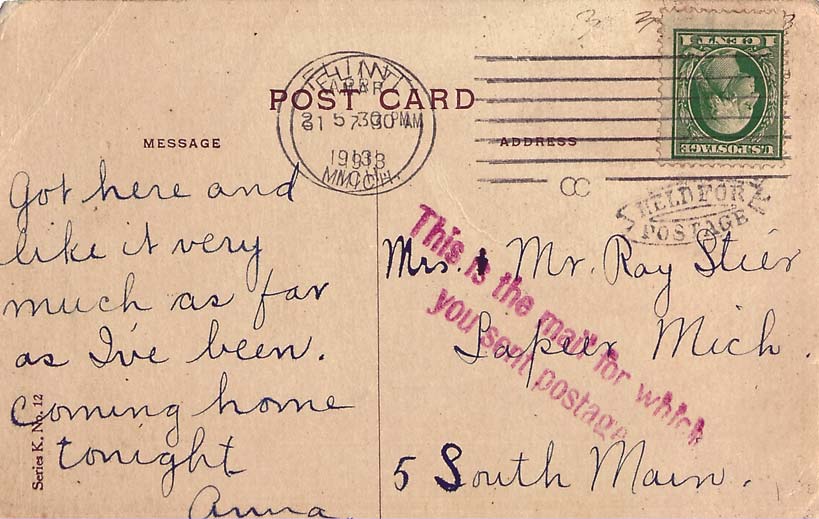 POST CARD
MESSAGE
ADDRESS
FLINT
MICH.
1 CENT 1
U.S. POSTAGE
HELD FOR
POSTAGE
This is the mail for which
you sent postage
Got here and
like it very
much as far
as I've been.
Coming home
tonight
Anna
Mrs. & Mr. Ray Stier
Lapeer Mich.
5 South Main.
Series K. No. 12